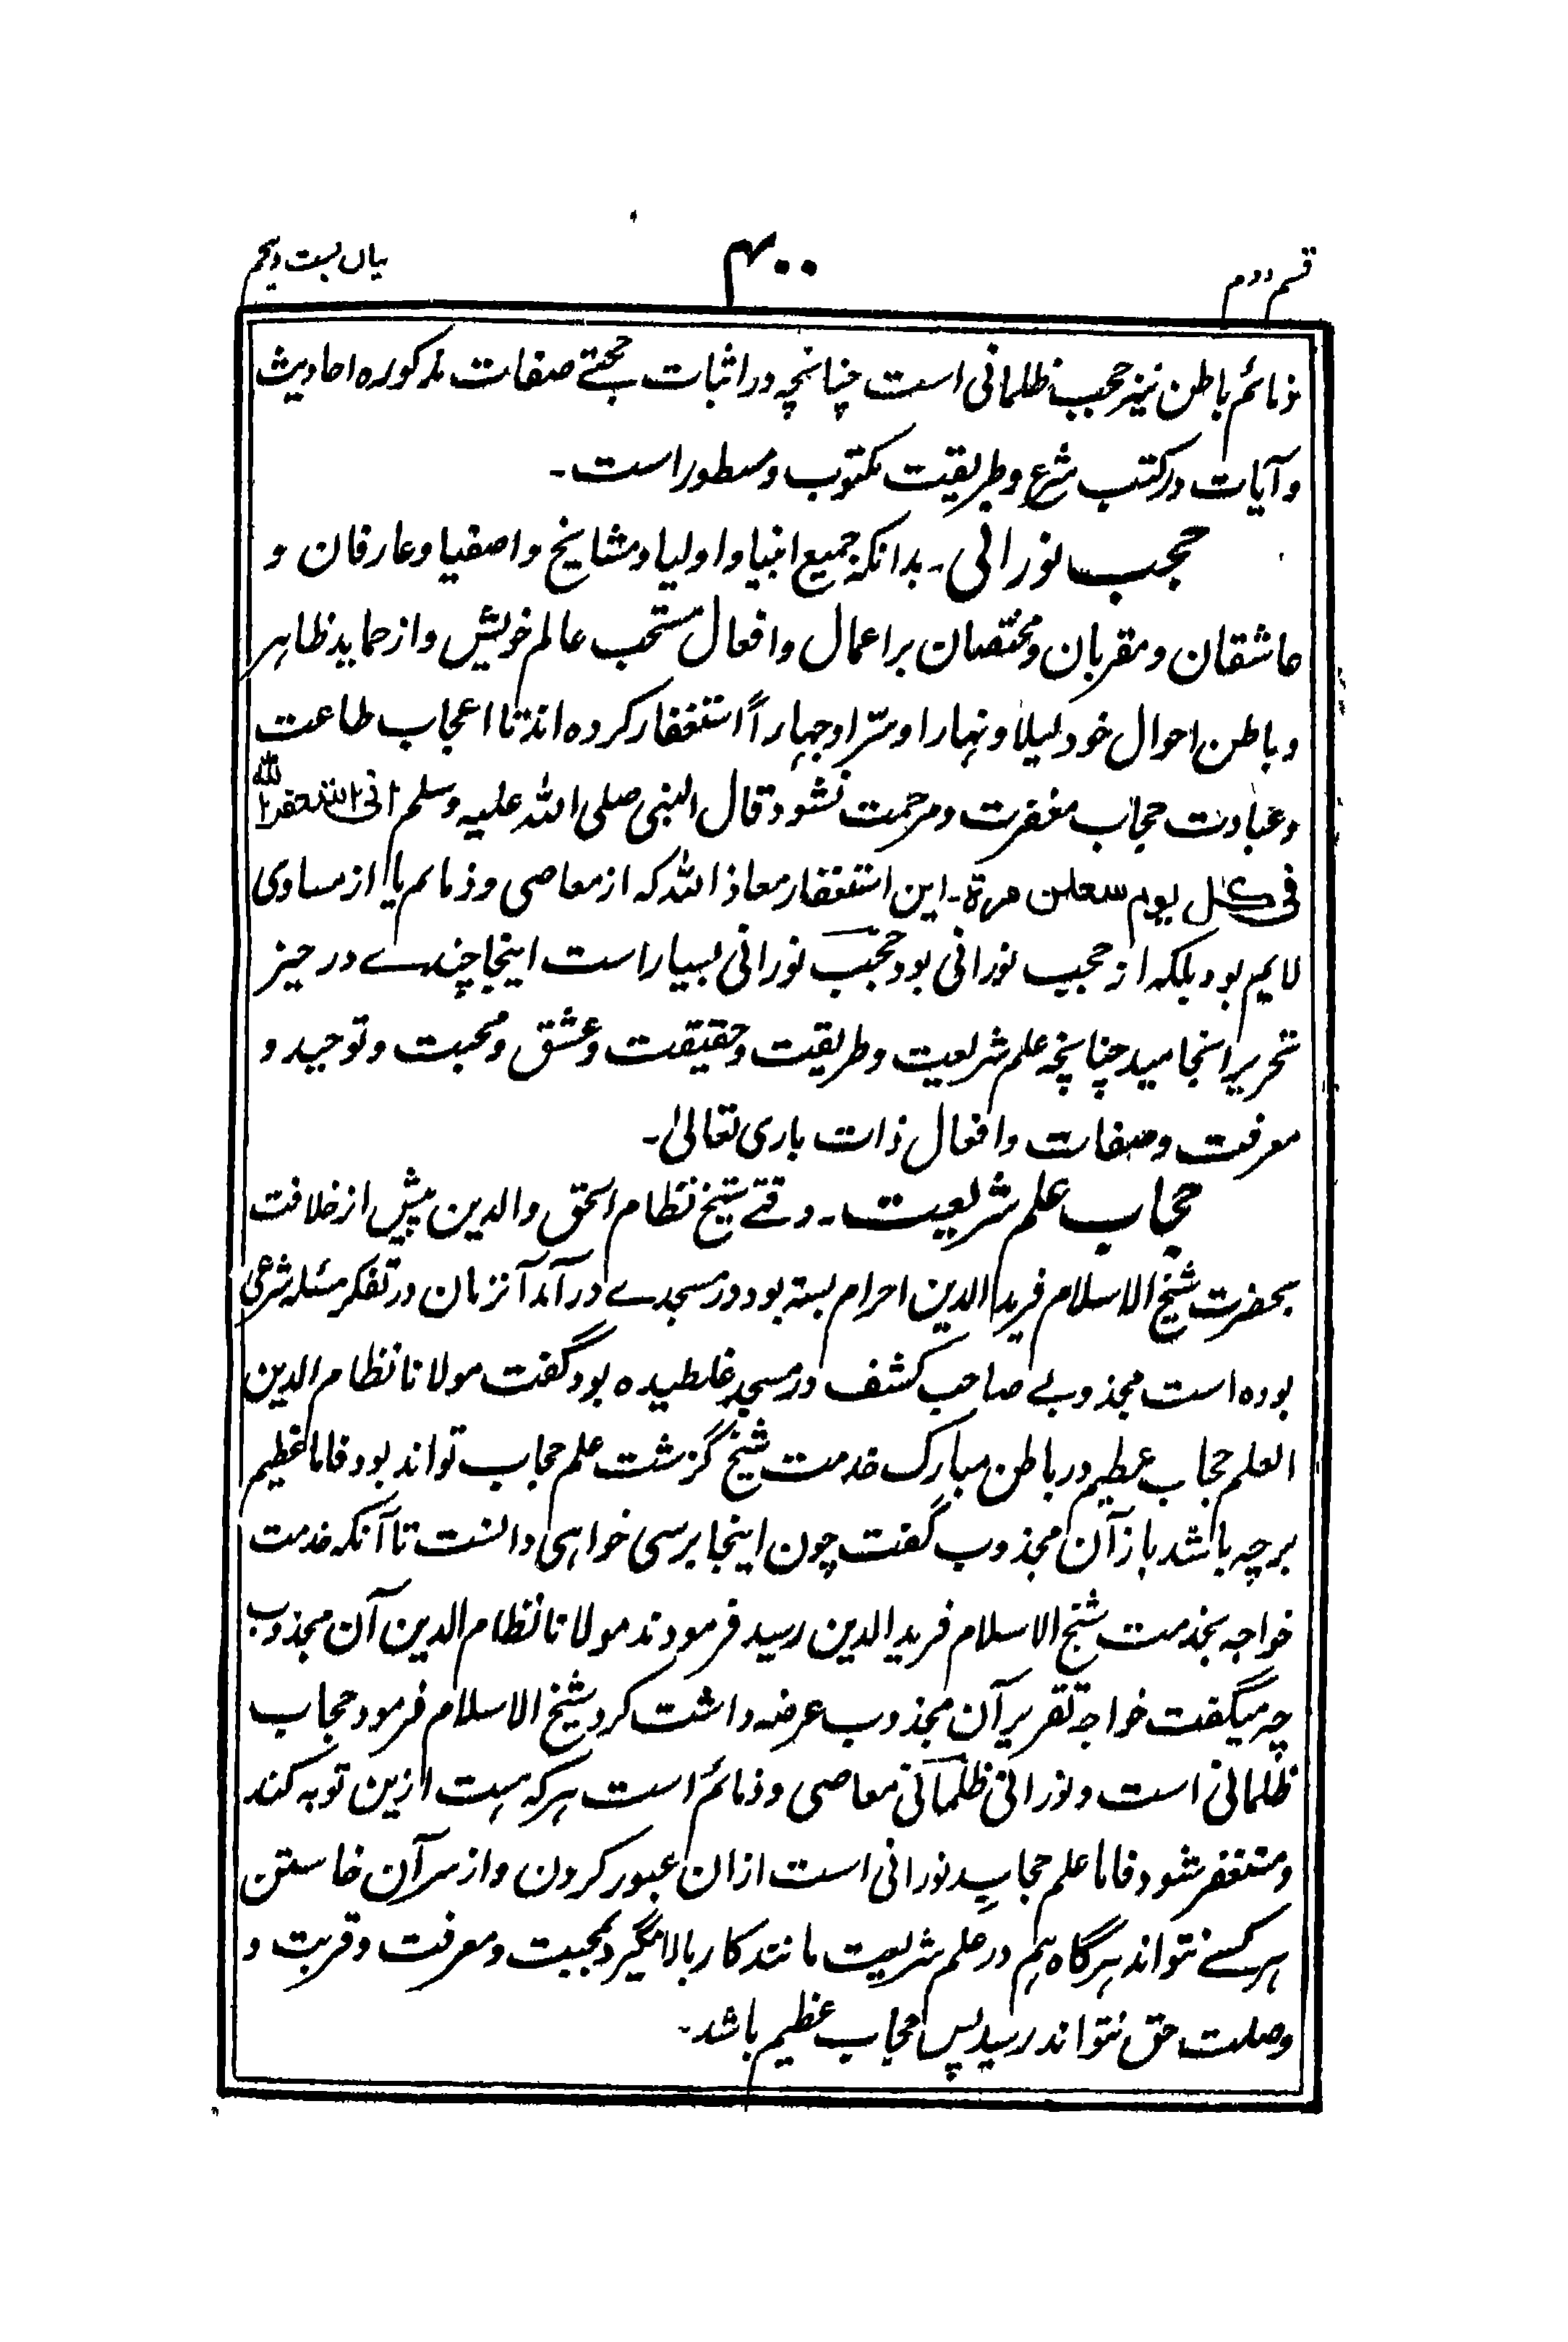 قسم دوم
۴۰۰
بیان بست و پنجم
ذمائم باطن نیز حجب ظلمانی است چنانچہ در اثبات حجتے صفات مذکورہ احادیث
و آیات در کتب شرع و طریقت مکتوب و مسطور است۔
حجب نورانی۔ بدانکہ جمیع انبیا و اولیا و مشایخ و اصفیا و عارفان و
عاشقان و مقربان و مختصان بر اعمال و افعال مستحب عالم خویش و از حماید ظاہر
و باطن احوال خود لیلاً و نہارا و سرّا و جہاراً استغفار کردہ اند تا اعجاب طاعت
و عبادت حجاب مغفرت و مرحمت نشود قال النبی صلی اللہ علیہ وسلم انی استغفر اللہ
فی کل یوم سبعین مرۃ۔ این استغفار معاذ اللہ کہ از معاصی و ذمائم یا از مساوی
لایم بود بلکہ از حجب نورانی بود حجب نورانی بسیار است اینجا چندے در حیز
تحریر انجامید چنانچہ علم شریعت و طریقت و حقیقت و عشق و محبت و توحید و
معرفت و صفات و افعال ذات باری تعالیٰ۔
حجاب علم شریعت۔ وقتے شیخ نظام الحق والدین پیش از خلافت
بحضرت شیخ الاسلام فرید الدین احرام بستہ بود در مسجدے در آمد آنزمان در تفکر مسئلہ شرعی
بودہ است مجذوبے صاحب کشف در مسجد غلطیدہ بود گفت مولانا نظام الدین
العلم حجاب عظیم در باطن مبارک خدمت شیخ گزشت علم حجاب تواند بود فاما عظیم
برچہ باشد باز آن مجذوب گفت چون اینجا برسی خواہی دانست تا آنکہ خدمت
خواجہ بخدمت شیخ الاسلام فرید الدین رسید فرمودند مولانا نظام الدین آن مجذوب
چہ میگفت خواجہ تقریر آن مجذوب عرضہ داشت کرد شیخ الاسلام فرمود حجاب
ظلمانی است و نورانی ظلمانی معاصی و ذمائم است ہر کہ ہست ازین توبہ کند
و مستغفر شود فاما علم حجاب نورانی است ازان عبور کردن و از سر آن خاستن
ہر کسے نتواند ہر گاہ ہم در علم شریعت ماند کار بالا نگیرد بمحبت و معرفت و قربت و
وصلت حق نتواند رسید پس حجاب عظیم باشد۔